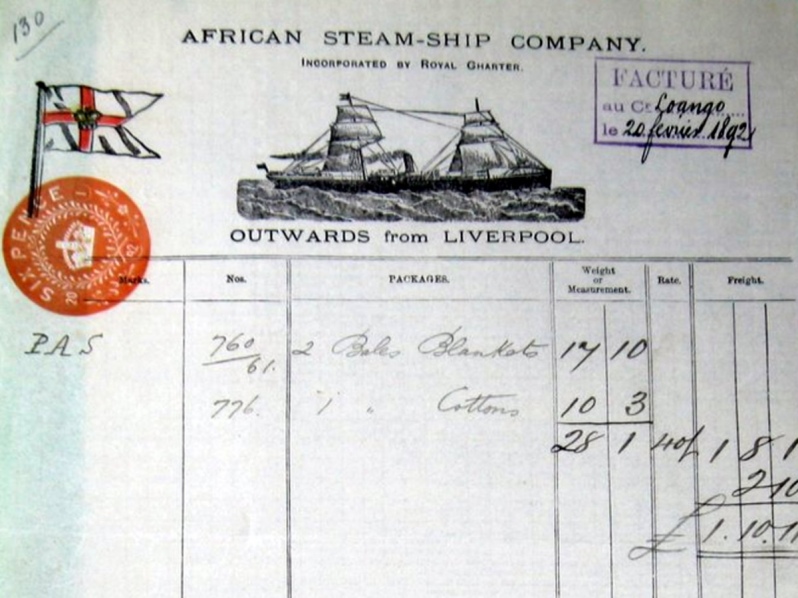 130
AFRICAN STEAM-SHIP COMPANY.
INCORPORATED BY ROYAL CHARTER.
FACTURÉ
au Ct Loango
le 20 février 1892
SIX PENCE
OUTWARDS from LIVERPOOL.
Marks. Nos. PACKAGES. Weight or Measurement. Rate. Freight.
PAS 760/61. 2 Bales Blankets 17 10
776. 1 " Cottons 10 3
28 1 40/ 1 8 1
2 10
£ 1. 10. 11